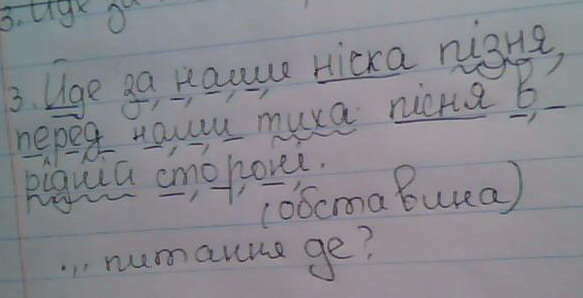 3. Йде за
3. Йде за нами ніска пізня,
перед нами тиха пісня в
рідній стороні.
(обставина)
... питання де?